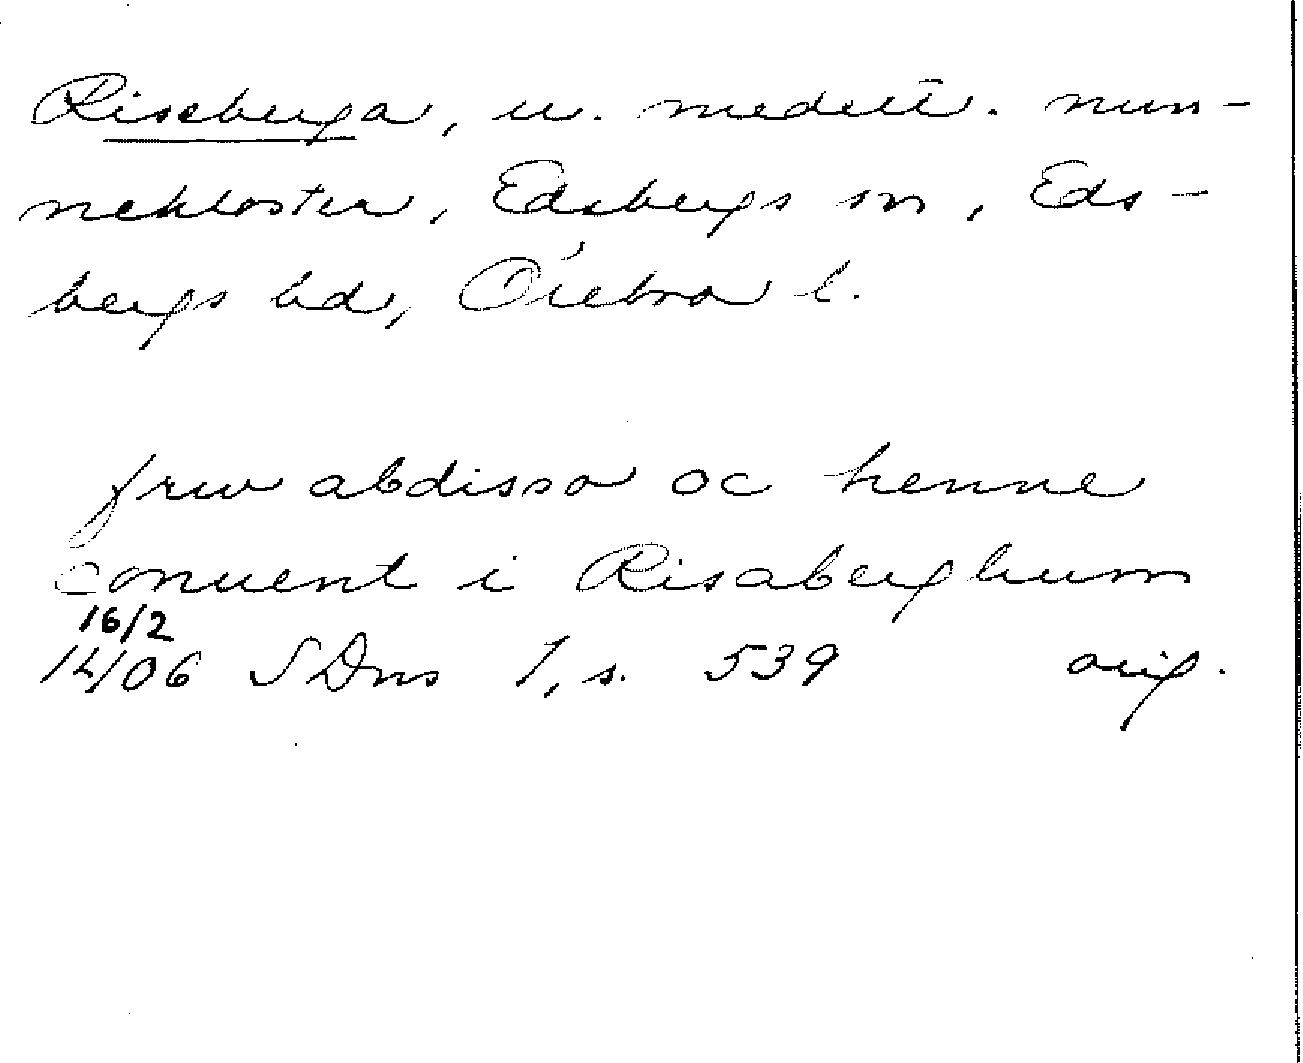 Riseberga, medelt. nun-
nekloster, Edsbergs sn, Eds-
bergs hd, Örebro l.
frw abdissa oc henne
conuent i Risaberghum
16/2
14/06 SDns 1, s. 539 orig.